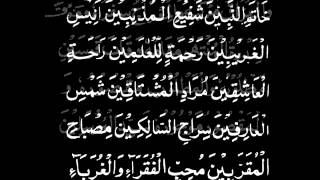 خَاتَمِ النَّبِيِّيْنَ شَفِيْعِ الْمُذْنِبِيْنَ اَنِيْسِ
الْغَرِيْبِيْنَ رَحْمَةٍ لِّلْعٰلَمِيْنَ رَاحَةِ
الْعَاشِقِيْنَ مُرَادِ الْمُشْتَاقِيْنَ شَمْسِ
الْعَارِفِيْنَ سِرَاجِ السَّالِكِيْنَ مِصْبَاحِ
الْمُقَرَّبِيْنَ مُحِبِّ الْفُقَرَآءِ وَالْغُرَبَآءِ